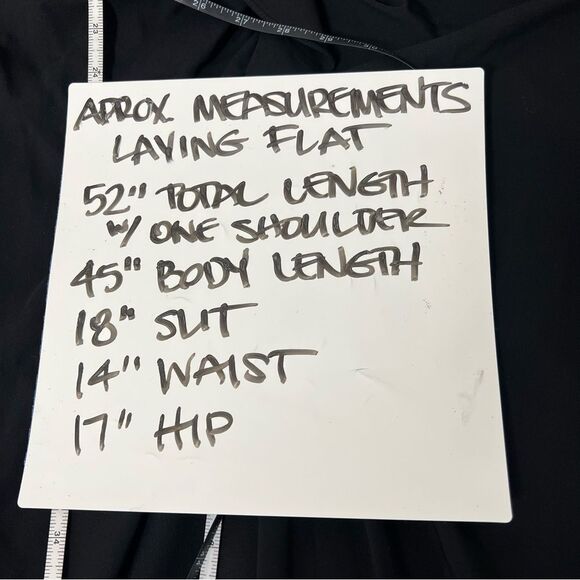 2|6
2|7
2|8
2|9
23
24
APROX MEASUREMENTS
LAYING FLAT
52" TOTAL LENGTH
W/ ONE SHOULDER
45" BODY LENGTH
18" SLIT
14" WAIST
17" HIP
34